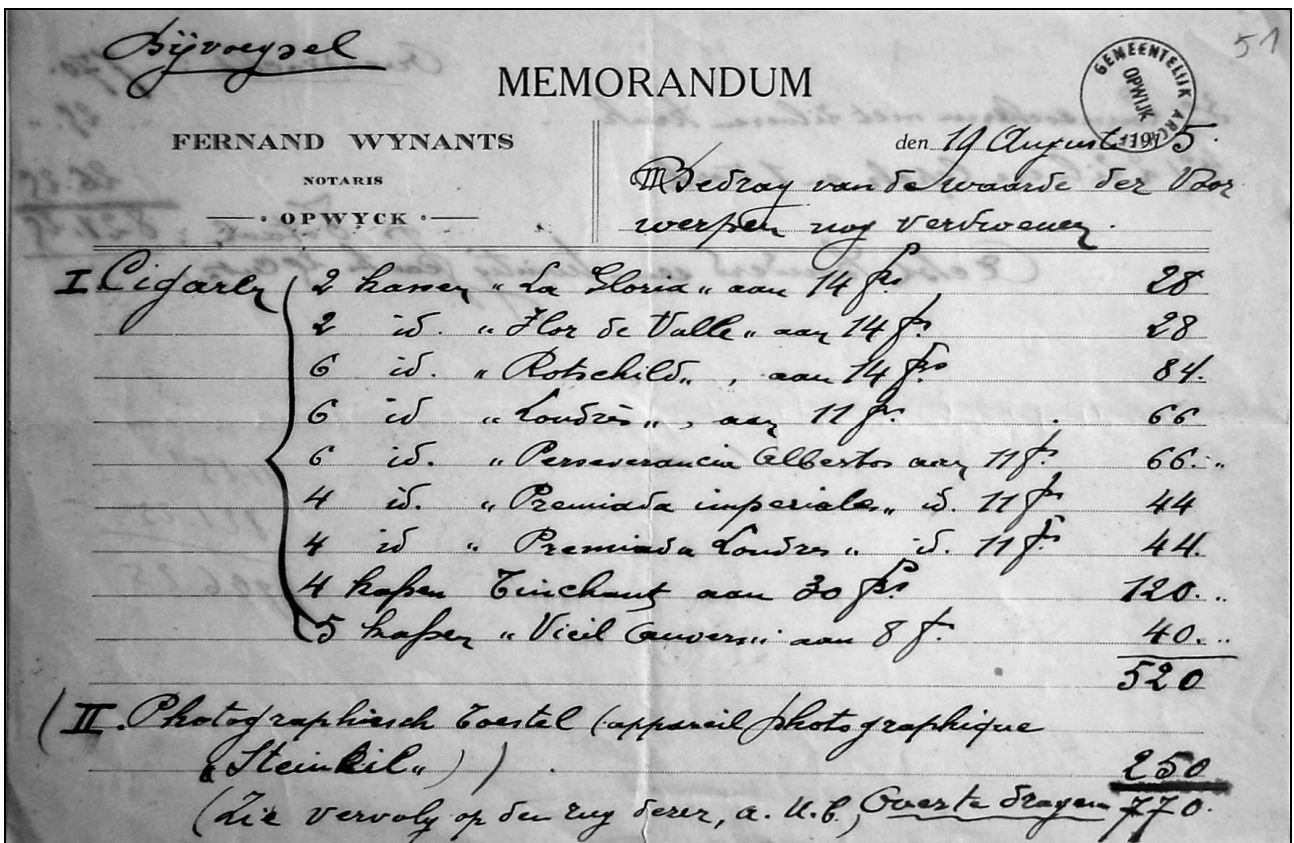 Bijvoegsel
51
MEMORANDUM
GEMEENTELIJK ARCHIEF
OPWIJK
FERNAND WYNANTS
NOTARIS
OPWYCK
den 19 Augustus 1915.
Bedrag van de waarde der Voor
werpen nog verdwenen.
I Cigaren 2 kassen "La Gloria" aan 14 frs 28
2 id. "Flor de Valle" aan 14 f. 28
6 id. "Rotschild", aan 14 frs 84.
6 id "Londrès", aan 11 fr. 66
6 id. "Perseverancia Albertos aan 11 f. 66. "
4 id. "Premiada imperiales" id. 11 frs 44
4 id "Premiada Londres" id. 11 f. 44.
4 kassen Tinchant aan 30 frs 120. "
5 kassen "Vieil Anvers" aan 8 f. 40. "
520
(II. Photographiesch toestel (appareil photographique
"Steinheil")) 250
(Zie vervolg op den rug dezer, a. u. b.) Over te dragen 770.